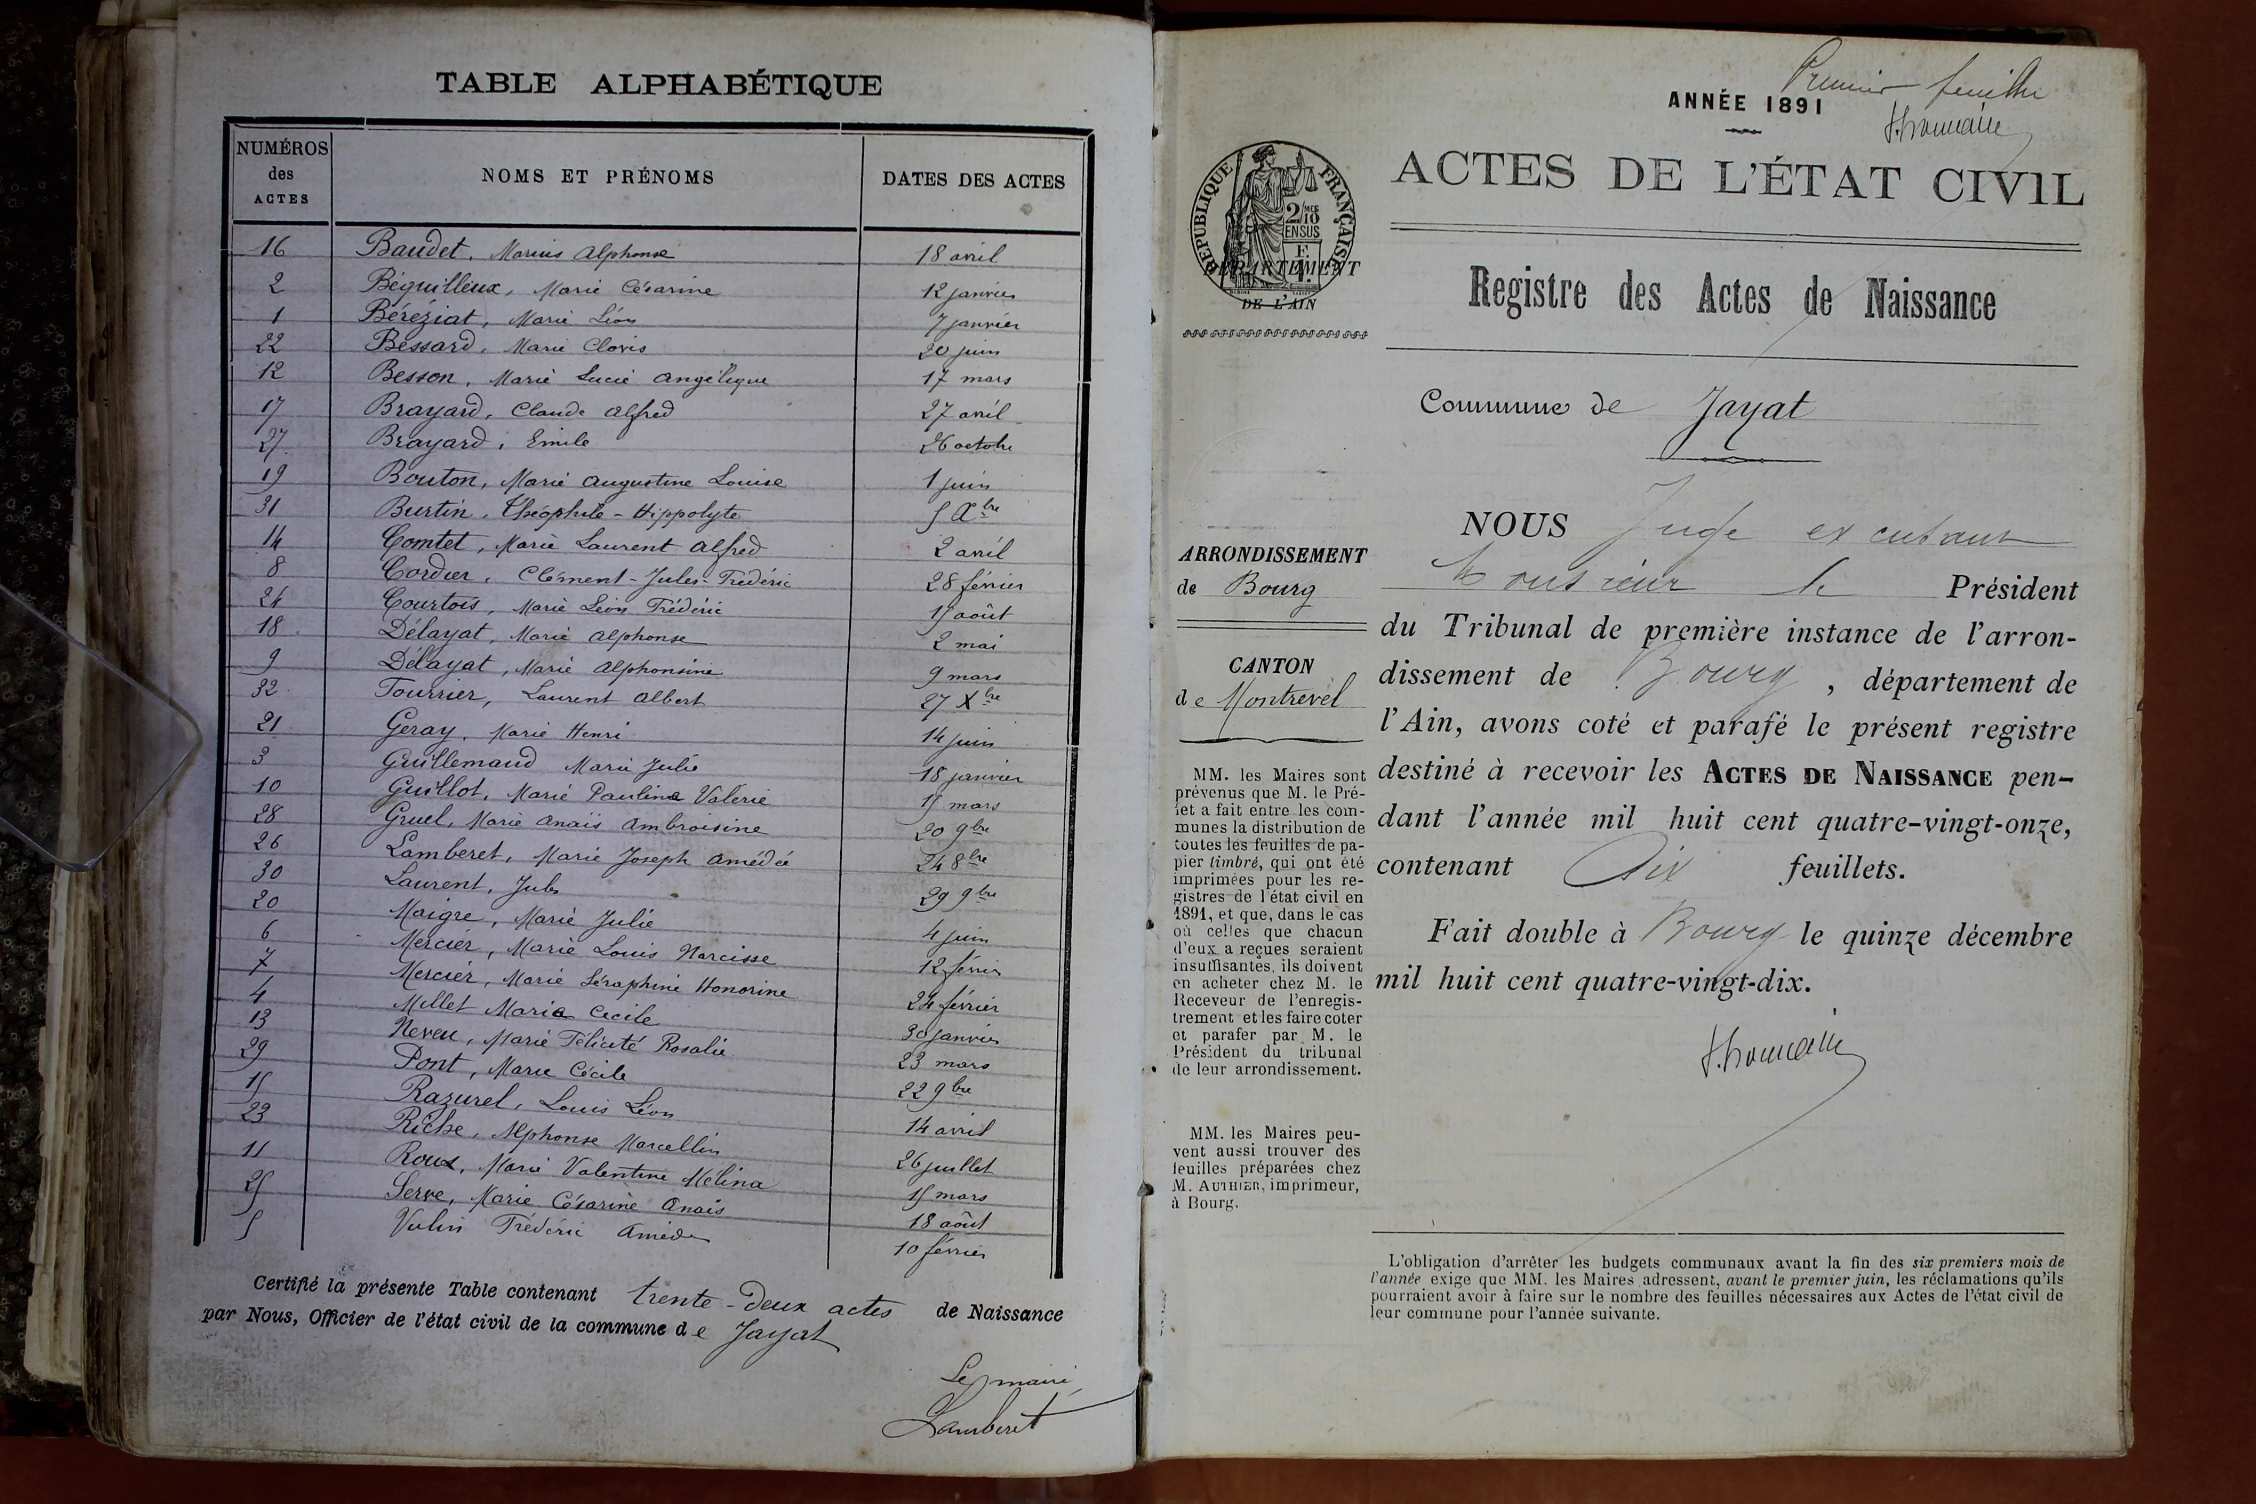 TABLE ALPHABÉTIQUE
NUMÉROS des ACTES NOMS ET PRÉNOMS DATES DES ACTES
16 Baudet, Marius Alphonse 18 avril
2 Béguilleux, Marie Césarine 12 janvier
1 Béréziat, Marie Léon 7 janvier
22 Bessard, Marie Clovis 20 juin
12 Besson, Marie Lucie Angélique 17 mars
17 Brayard, Claude Alfred 27 avril
27 Brayard, Emile 26 octobre
19 Bouton, Marie Augustine Louise 1 juin
31 Burtin, Théophile-Hippolyte 5 Xbre
14 Comtet, Marie Laurent Alfred 2 avril
8 Cordier, Clément-Jules-Frédéric 28 février
24 Courtois, Marie Léon Frédéric 15 août
18 Délayat, Marie Alphonse 2 mai
9 Délayat, Marie Alphonsine 9 mars
32 Fourrier, Laurent Albert 27 Xbre
21 Geray, Marie Henri 14 juin
3 Guillemaud Marie Julie 18 janvier
10 Guillot, Marie Pauline Valérie 15 mars
28 Gruel, Marie Anaïs Ambroisine 20 9bre
26 Lamberet, Marie Joseph Amédée 24 8bre
30 Laurent, Jules 29 9bre
20 Maigre, Marie Julie 4 juin
6 Mercier, Marie Louis Narcisse 12 février
7 Mercier, Marie Séraphine Honorine 24 février
4 Millet Maria Cécile 30 janvier
13 Neveu, Marie Félicité Rosalie 23 mars
29 Pont, Marie Cécile 22 9bre
15 Razurel, Louis Léon 14 avril
23 Riche, Alphonse Marcellin 26 juillet
11 Roux, Marie Valentine Mélina 15 mars
25 Serve, Marie Césarine Anaïs 18 août
5 Vulin Frédéric Amédée 10 février
Certifié la présente Table contenant trente-deux actes de Naissance
par Nous, Officier de l'état civil de la commune de Jayat
Le maire,
Lamberet
Premier feuillet
ANNÉE 1891
ACTES DE L'ÉTAT CIVIL
RÉPUBLIQUE FRANÇAISE
2/10 MES
EN SUS
F.
1.
DÉPARTEMENT
DE L'AIN
Registre des Actes de Naissance
Commune de Jayat
ARRONDISSEMENT
de Bourg
CANTON
de Montrevel
MM. les Maires sont
prévenus que M. le Pré-
fet a fait entre les com-
munes la distribution de
toutes les feuilles de pa-
pier timbré, qui ont été
imprimées pour les re-
gistres de l'état civil en
1891, et que, dans le cas
où celles que chacun
d'eux a reçues seraient
insuffisantes, ils doivent
en acheter chez M. le
Receveur de l'enregis-
trement et les faire coter
et parafer par M. le
Président du tribunal
de leur arrondissement.
MM. les Maires peu-
vent aussi trouver des
feuilles préparées chez
M. AUTHIER, imprimeur,
à Bourg.
NOUS Juge
Monsieur le Président
du Tribunal de première instance de l'arron-
dissement de Bourg, département de
l'Ain, avons coté et parafé le présent registre
destiné à recevoir les ACTES DE NAISSANCE pen-
dant l'année mil huit cent quatre-vingt-onze,
contenant dix feuillets.
Fait double à Bourg le quinze décembre
mil huit cent quatre-vingt-dix.
L'obligation d'arrêter les budgets communaux avant la fin des six premiers mois de
l'année exige que MM. les Maires adressent, avant le premier juin, les réclamations qu'ils
pourraient avoir à faire sur le nombre des feuilles nécessaires aux Actes de l'état civil de
leur commune pour l'année suivante.